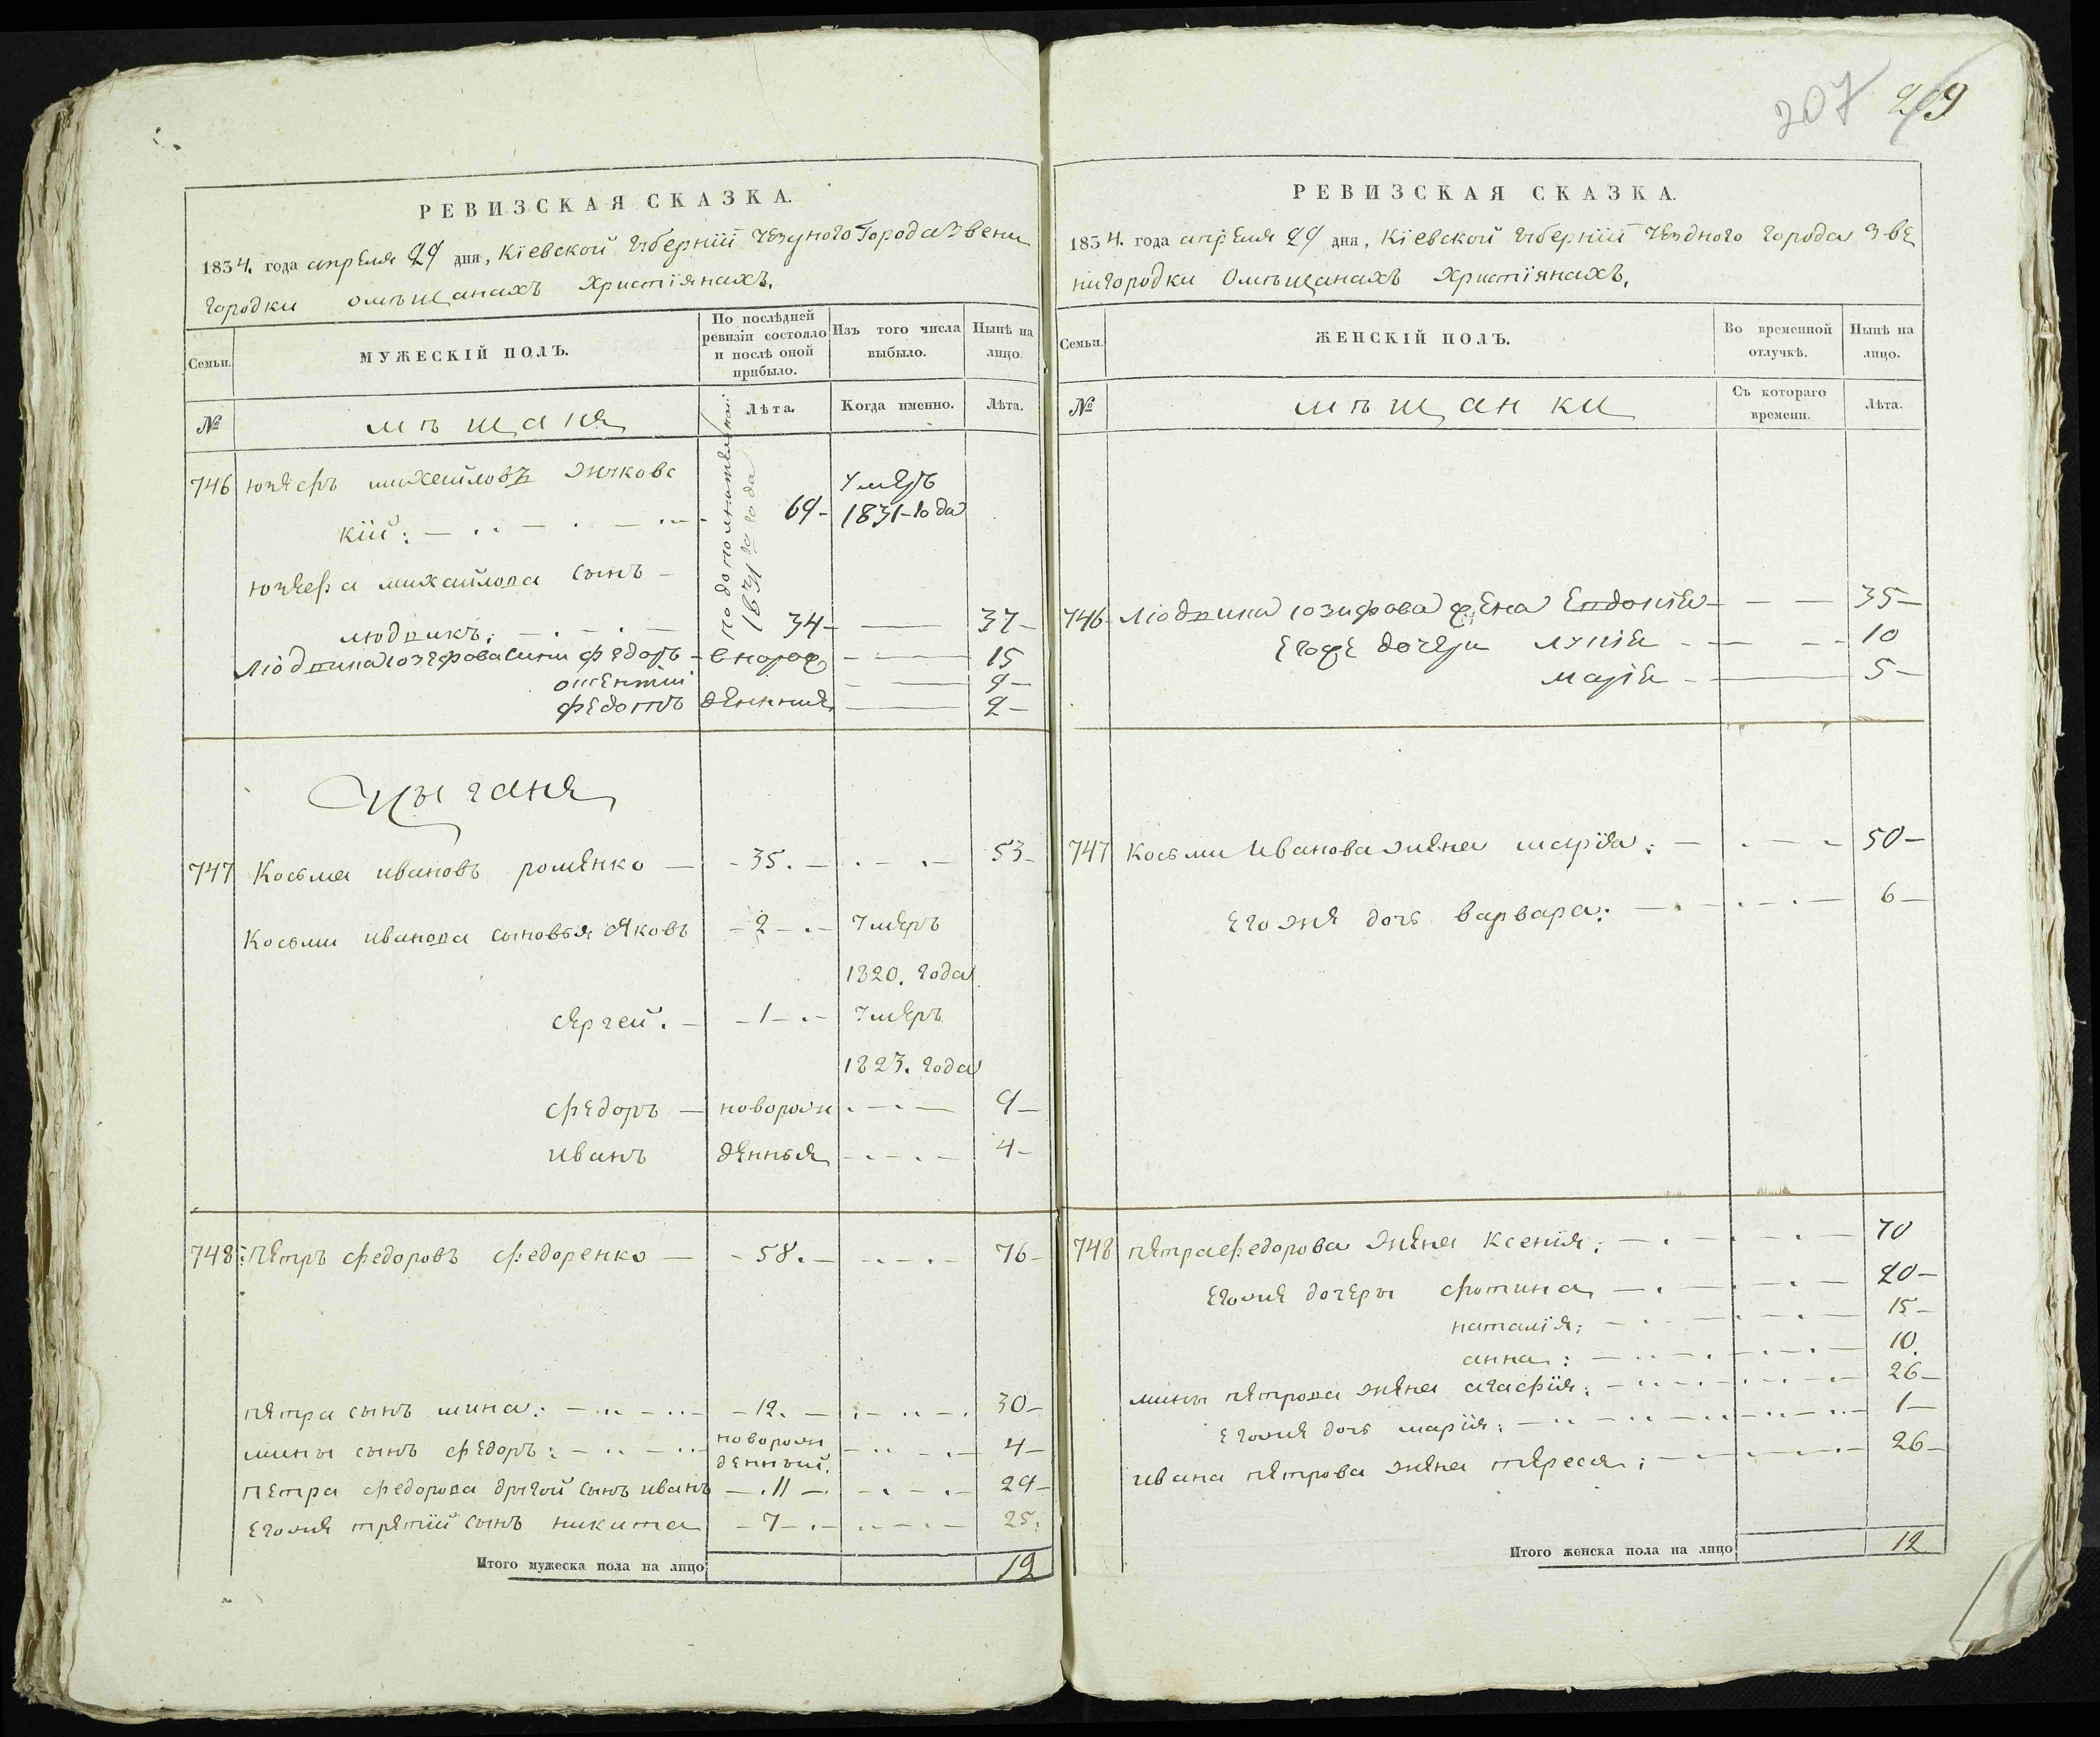 207 209
РЕВИЗСКАЯ СКАЗКА.
1834. года апреля 29 дня, Кіевской Губерніи уезднаго Города Звени
городки омѣщанахъ Христіянахъ.
Семьи.
МУЖЕСКІЙ ПОЛЪ.
По послѣдней ревизіи состояло и послѣ оной прибыло.
Изъ того числа выбыло.
Нынѣ на лицо.
№
мѣщане
Лѣта.
Когда именно.
Лѣта.
по дополнительной
1831 года
746 михайловъ
кій: 69 умеръ 1831 года
михайлова сынъ
людвикъ: 34 37
Людвика юзефова сыни федоръ вновор 15
9
федотъ денние 2
Цыгане
747 Косьма ивановъ роменко 35. 53
Косьми иванова сыновья Яковъ 2 умеръ
1820. года
сергей. 1 умеръ
1823. года
федоръ новорож 9
иванъ денныя 4
748 Петръ федоровъ федоренко 58. 76
петра сынъ мина: 12. 30
мины сынъ федоръ: новорож денный. 4
петра федорова другой сынъ иванъ 11 29
егоже третій сынъ никита 7 25.
Итого мужеска пола на лицо 12
РЕВИЗСКАЯ СКАЗКА.
1834. года апреля 29 дня, Кіевской Губерніи уездного города Зве
нигородки Омѣщанахъ Христіянахъ.
Семьи.
ЖЕНСКІЙ ПОЛЪ.
Во временной отлучкѣ.
Нынѣ на лицо.
№
мѣщанки
Съ котораго времени.
Лѣта.
746 Людвика юзифова жена Евдокія 35
Егоже дочери 10
марія 5
747 Косьми Иванова жена марія: 50
егоже дочь варвара: 6
748 петра федорова жена ксенія: 70
егоже дочеры фотина 20
наталія: 15
анна: 10.
мины петрова жена агафія: 26
егоже дочь марія: 1
ивана петрова жена тереся: 26
Итого женска пола на лицо 12